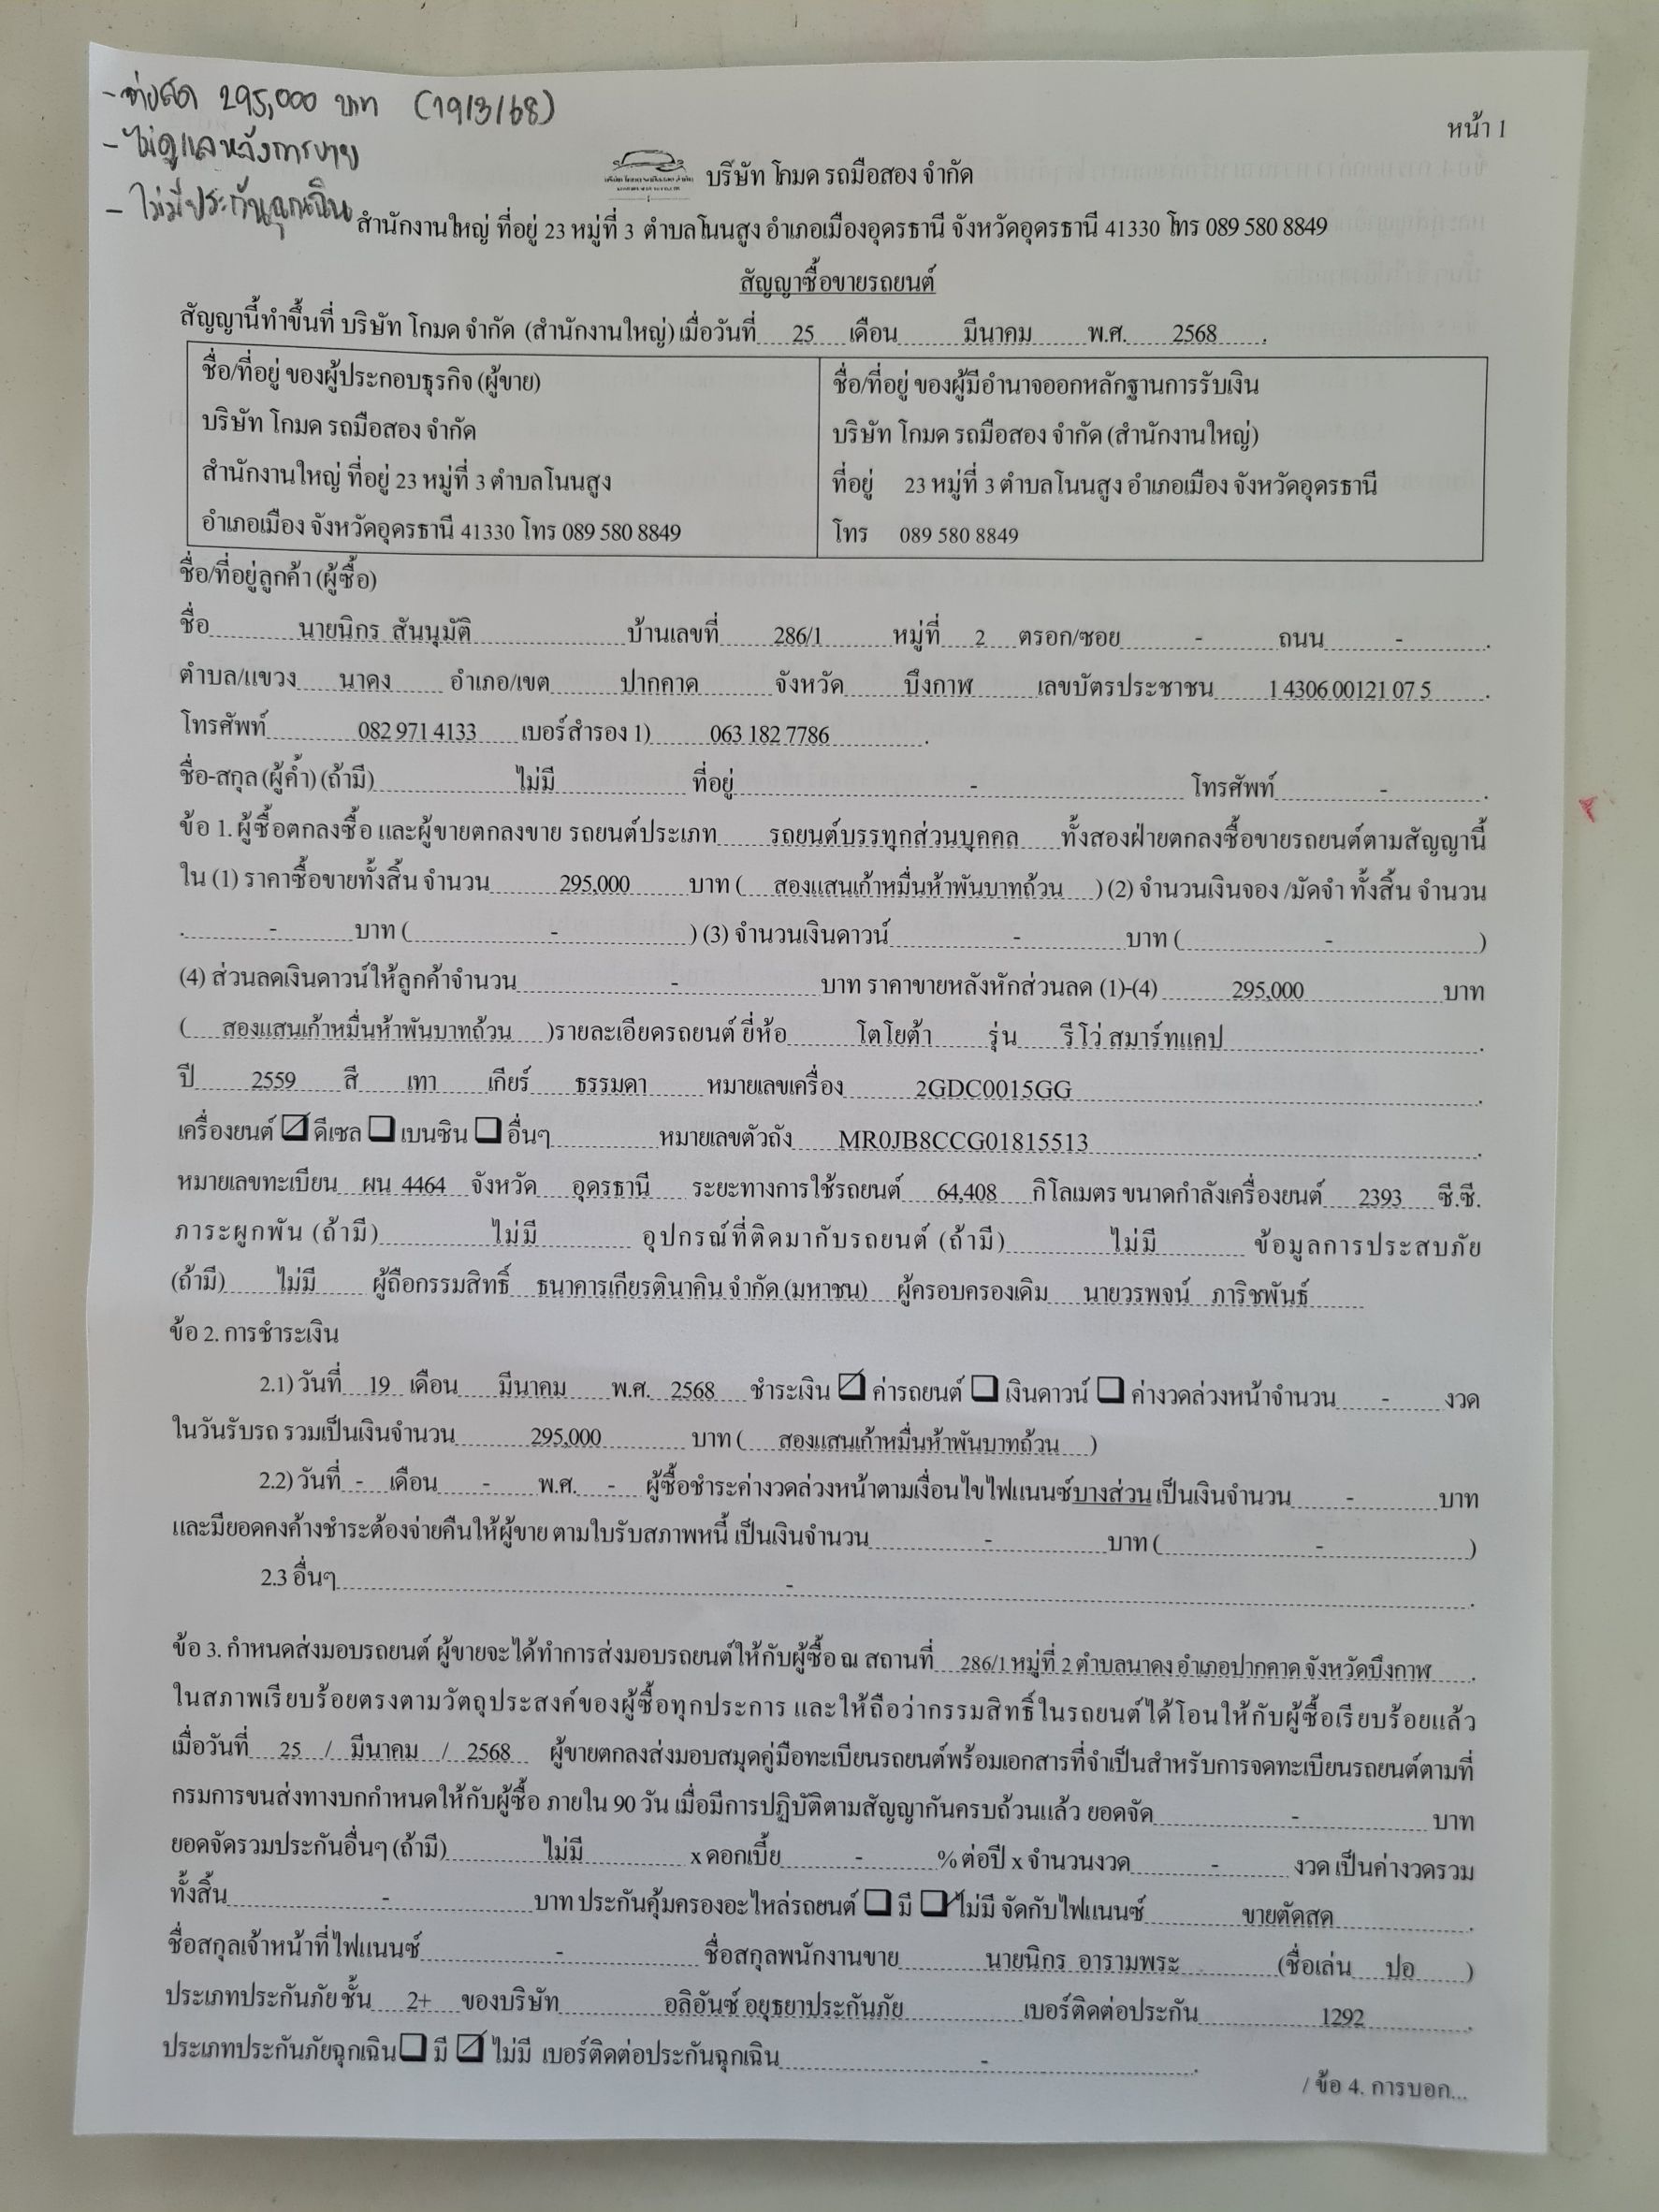 - จ่ายสด 295,000 บาท (19/3/68)
- ไม่ดูแลหลังการขาย
- ไม่มีประกันฉุกเฉิน
หน้า 1
บริษัท โกมด รถมือสอง จำกัด
สำนักงานใหญ่ ที่อยู่ 23 หมู่ที่ 3 ตำบลโนนสูง อำเภอเมืองอุดรธานี จังหวัดอุดรธานี 41330 โทร 089 580 8849
สัญญาซื้อขายรถยนต์
สัญญานี้ทำขึ้นที่ บริษัท โกมด จำกัด (สำนักงานใหญ่) เมื่อวันที่ 25 เดือน มีนาคม พ.ศ. 2568 .
ชื่อ/ที่อยู่ ของผู้ประกอบธุรกิจ (ผู้ขาย)
บริษัท โกมด รถมือสอง จำกัด
สำนักงานใหญ่ ที่อยู่ 23 หมู่ที่ 3 ตำบลโนนสูง
อำเภอเมือง จังหวัดอุดรธานี 41330 โทร 089 580 8849
ชื่อ/ที่อยู่ ของผู้มีอำนาจออกหลักฐานการรับเงิน
บริษัท โกมด รถมือสอง จำกัด (สำนักงานใหญ่)
ที่อยู่ 23 หมู่ที่ 3 ตำบลโนนสูง อำเภอเมือง จังหวัดอุดรธานี
โทร 089 580 8849
ชื่อ/ที่อยู่ลูกค้า (ผู้ซื้อ)
ชื่อ นายนิกร สันนุมัติ บ้านเลขที่ 286/1 หมู่ที่ 2 ตรอก/ซอย - ถนน - .
ตำบล/แขวง นาคง อำเภอ/เขต ปากคาด จังหวัด บึงกาฬ เลขบัตรประชาชน 1 4306 00121 07 5 .
โทรศัพท์ 082 971 4133 เบอร์สำรอง 1) 063 182 7786 .
ชื่อ-สกุล (ผู้ค้ำ) (ถ้ามี) ไม่มี ที่อยู่ - โทรศัพท์ - .
ข้อ 1. ผู้ซื้อตกลงซื้อ และผู้ขายตกลงขาย รถยนต์ประเภท รถยนต์บรรทุกส่วนบุคคล ทั้งสองฝ่ายตกลงซื้อขายรถยนต์ตามสัญญานี้
ใน (1) ราคาซื้อขายทั้งสิ้น จำนวน 295,000 บาท ( สองแสนเก้าหมื่นห้าพันบาทถ้วน ) (2) จำนวนเงินจอง /มัดจำ ทั้งสิ้น จำนวน
. - บาท ( - ) (3) จำนวนเงินดาวน์ - บาท ( - )
(4) ส่วนลดเงินดาวน์ให้ลูกค้าจำนวน - บาท ราคาขายหลังหักส่วนลด (1)-(4) 295,000 บาท
( สองแสนเก้าหมื่นห้าพันบาทถ้วน )รายละเอียดรถยนต์ ยี่ห้อ โตโยต้า รุ่น รีโว่ สมาร์ทแคป .
ปี 2559 สี เทา เกียร์ ธรรมดา หมายเลขเครื่อง 2GDC0015GG .
เครื่องยนต์ ☑ ดีเซล ☐ เบนซิน ☐ อื่นๆ หมายเลขตัวถัง MR0JB8CCG01815513 .
หมายเลขทะเบียน ผน 4464 จังหวัด อุดรธานี ระยะทางการใช้รถยนต์ 64,408 กิโลเมตร ขนาดกำลังเครื่องยนต์ 2393 ซี.ซี.
ภาระผูกพัน (ถ้ามี) ไม่มี อุปกรณ์ที่ติดมากับรถยนต์ (ถ้ามี) ไม่มี ข้อมูลการประสบภัย
(ถ้ามี) ไม่มี ผู้ถือกรรมสิทธิ์ ธนาคารเกียรตินาคิน จำกัด (มหาชน) ผู้ครอบครองเดิม นายวรพจน์ ภาริชพันธ์
ข้อ 2. การชำระเงิน
2.1) วันที่ 19 เดือน มีนาคม พ.ศ. 2568 ชำระเงิน ☑ ค่ารถยนต์ ☐ เงินดาวน์ ☐ ค่างวดล่วงหน้าจำนวน - งวด
ในวันรับรถ รวมเป็นเงินจำนวน 295,000 บาท ( สองแสนเก้าหมื่นห้าพันบาทถ้วน )
2.2) วันที่ - เดือน - พ.ศ. - ผู้ซื้อชำระค่างวดล่วงหน้าตามเงื่อนไขไฟแนนซ์บางส่วน เป็นเงินจำนวน - บาท
และมียอดคงค้างชำระต้องจ่ายคืนให้ผู้ขาย ตามใบรับสภาพหนี้ เป็นเงินจำนวน - บาท ( - )
2.3 อื่นๆ - .
ข้อ 3. กำหนดส่งมอบรถยนต์ ผู้ขายจะได้ทำการส่งมอบรถยนต์ให้กับผู้ซื้อ ณ สถานที่ 286/1 หมู่ที่ 2 ตำบลนาคง อำเภอปากคาด จังหวัดบึงกาฬ .
ในสภาพเรียบร้อยตรงตามวัตถุประสงค์ของผู้ซื้อทุกประการ และให้ถือว่ากรรมสิทธิ์ในรถยนต์ได้โอนให้กับผู้ซื้อเรียบร้อยแล้ว
เมื่อวันที่ 25 / มีนาคม / 2568 ผู้ขายตกลงส่งมอบสมุดคู่มือทะเบียนรถยนต์พร้อมเอกสารที่จำเป็นสำหรับการจดทะเบียนรถยนต์ตามที่
กรมการขนส่งทางบกกำหนดให้กับผู้ซื้อ ภายใน 90 วัน เมื่อมีการปฏิบัติตามสัญญากันครบถ้วนแล้ว ยอดจัด - บาท
ยอดจัดรวมประกันอื่นๆ (ถ้ามี) ไม่มี x ดอกเบี้ย - % ต่อปี x จำนวนงวด - งวด เป็นค่างวดรวม
ทั้งสิ้น - บาท ประกันคุ้มครองอะไหล่รถยนต์ ☐ มี ☑ ไม่มี จัดกับไฟแนนซ์ ขายตัดสด .
ชื่อสกุลเจ้าหน้าที่ไฟแนนซ์ - ชื่อสกุลพนักงานขาย นายนิกร อารามพระ (ชื่อเล่น ปอ )
ประเภทประกันภัยชั้น 2+ ของบริษัท อลิอันซ์ อยุธยาประกันภัย เบอร์ติดต่อประกัน 1292 .
ประเภทประกันภัยฉุกเฉิน ☐ มี ☑ ไม่มี เบอร์ติดต่อประกันฉุกเฉิน - .
/ ข้อ 4. การบอก...